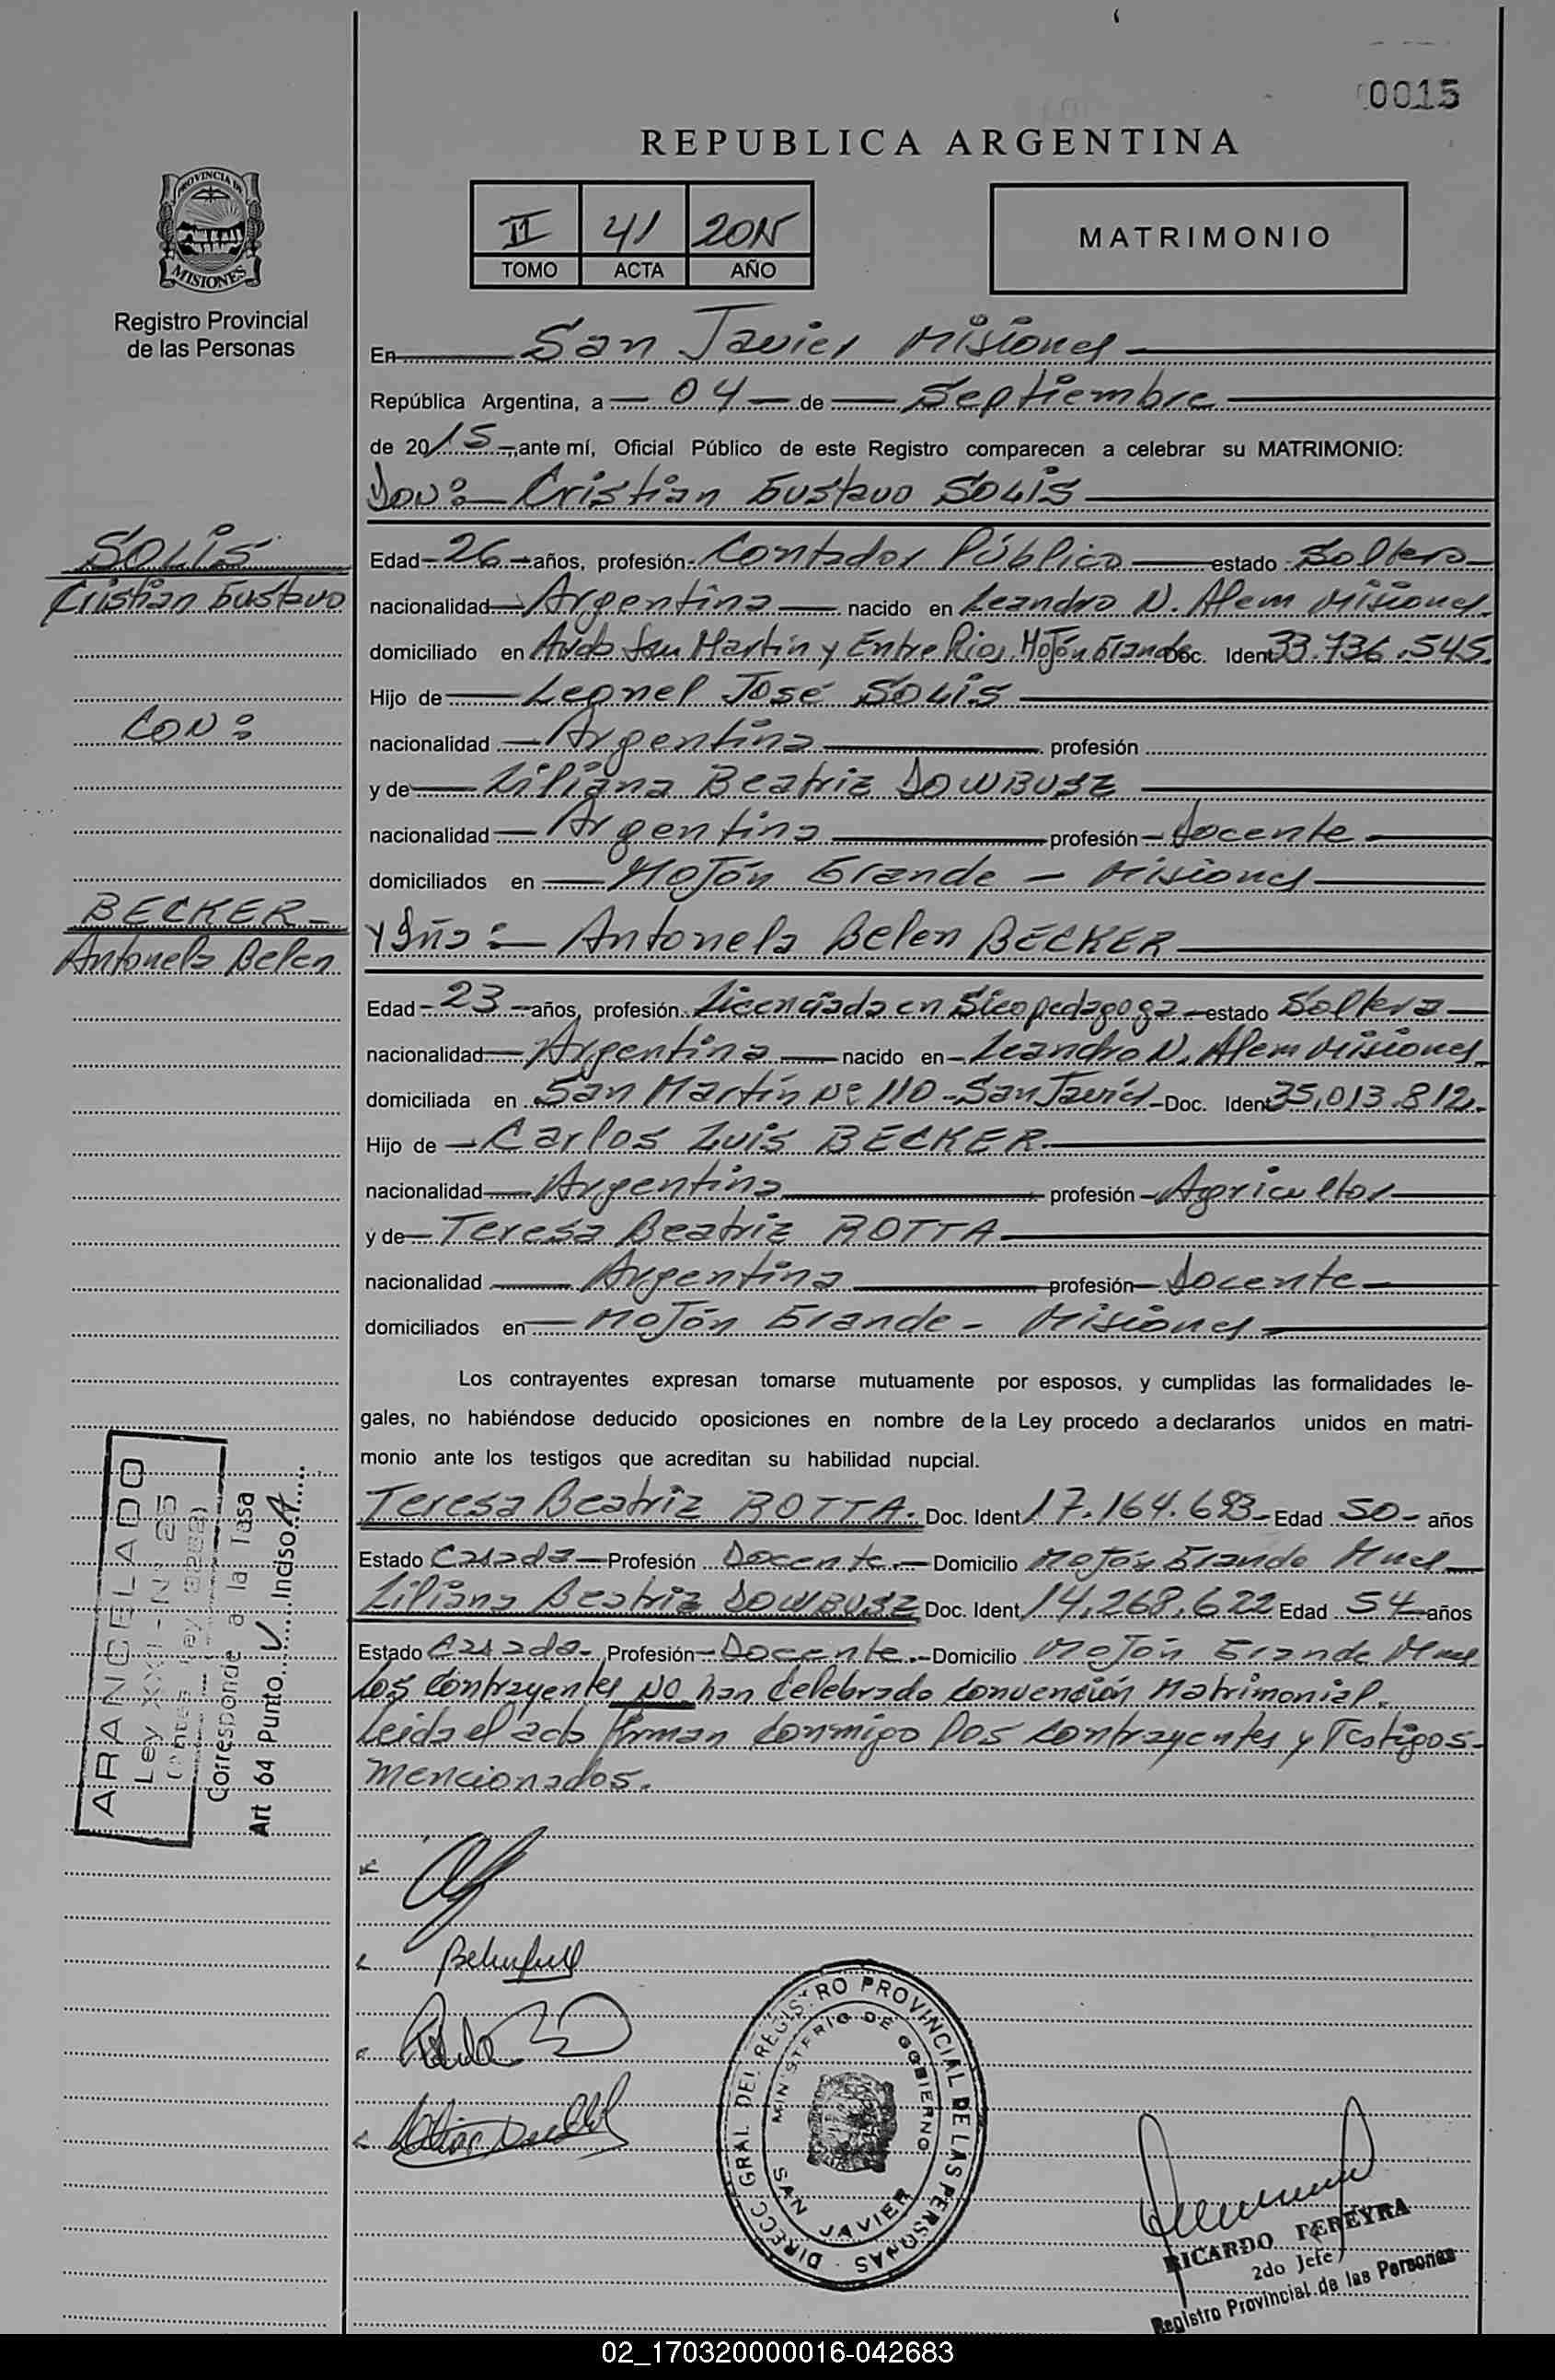 0015
REPUBLICA ARGENTINA
PROVINCIA DE
MISIONES
Registro Provincial
de las Personas
II 41 2015
TOMO ACTA AÑO
MATRIMONIO
En San Javier Misiones
República Argentina, a 04 de Septiembre
de 2015 ante mí, Oficial Público de este Registro comparecen a celebrar su MATRIMONIO:
Don: Cristian Gustavo SOLIS
SOLIS
Cristian Gustavo
CON:
BECKER
Antonela Belen
Edad 26 años, profesión Contador Público estado Soltero
nacionalidad Argentina nacido en Leandro N. Alem Misiones
domiciliado en Avda San Martín y Entre Rios Mojón Grande Doc. Ident 33.736.545
Hijo de Leonel José SOLIS
nacionalidad Argentina profesión
y de Liliana Beatriz DOWBUSZ
nacionalidad Argentina profesión Docente
domiciliados en Mojón Grande - Misiones
y Sña: Antonela Belen BECKER
Edad 23 años, profesión Licenciada en Sicopedagoga estado Soltera
nacionalidad Argentina nacido en Leandro N. Alem Misiones
domiciliada en San Martín Nº 110 - San Javier Doc. Ident 35.013.812
Hijo de Carlos Luis BECKER
nacionalidad Argentina profesión Agricultor
y de Teresa Beatriz ROTTA
nacionalidad Argentina profesión Docente
domiciliados en Mojón Grande - Misiones
Los contrayentes expresan tomarse mutuamente por esposos, y cumplidas las formalidades le-
gales, no habiéndose deducido oposiciones en nombre de la Ley procedo a declararlos unidos en matri-
monio ante los testigos que acreditan su habilidad nupcial.
Teresa Beatriz ROTTA. Doc. Ident 17.164.693 Edad 50 años
Estado Casada Profesión Docente Domicilio Mojón Grande
Liliana Beatriz DOWBUSZ Doc. Ident 14.268.622 Edad 54 años
Estado Casada Profesión Docente Domicilio Mojón Grande
Los Contrayentes NO han Celebrado Convención Matrimonial.
Leida el acta firman Conmigo los Contrayentes y Testigos
mencionados.
ARANCELADO
Ley XXII - Nº 25
Corresponde a la Tasa
Art 64 Punto V Inciso A
DIRECC GRAL DEL REGISTRO PROVINCIAL DE LAS PERSONAS
MINISTERIO DE GOBIERNO
SAN JAVIER
RICARDO PEREYRA
2do Jefe
Registro Provincial de las Personas
02_170320000016-042683